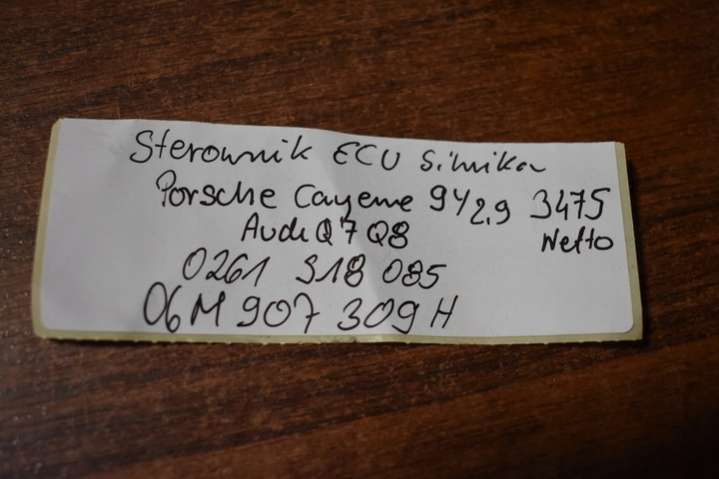 Sterownik ECU Silnika
Porsche Cayenne 9Y 2,9 3475
Audi Q7 Q8 Netto
0261 318 085
06M 907 309 H